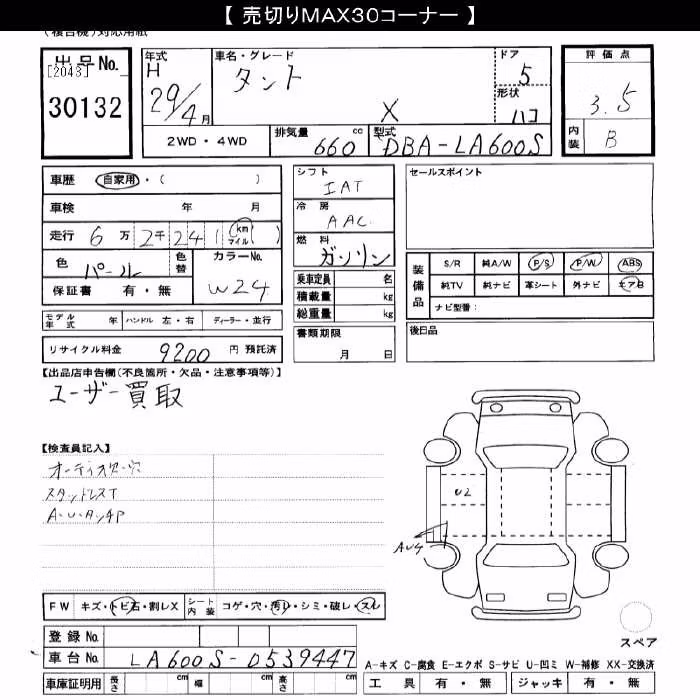 【 売切りMAX30コーナー 】
(複合機)対応用紙
出品No.
[2043]
30132
年式
H
29/4月
車名・グレード
タント
X
ドア
5
形状
ハコ
評価点
3.5
内装
B
2WD・4WD
排気量
660 cc
型式
DBA-LA600S
車歴 自家用・( )
車検 年 月
走行 6万 2千 24 ( km マイル )
色 パール
色替
カラーNo.
W24
保証書 有・無
モデル年式 年
ハンドル 左・右
ディーラー・並行
リサイクル料金 9200 円 預託済
シフト
IAT
冷房
AAC
燃料
ガソリン
乗車定員 名
積載量 kg
総重量 kg
書類期限
月 日
セールスポイント
装備品
S/R 純A/W P/S P/W ABS
純TV 純ナビ 革シート 外ナビ エアB
ナビ型番:
後日品
【出品店申告欄(不良箇所・欠品・注意事項等)】
ユーザー買取
【検査員記入】
オーディオ穴
スタッドレスT
A・U・
U2
AU4
FW キズ・トビ石・割レX
シート内装 コゲ・穴・汚レ・シミ・破レ・スレ
登録No.
車台No. LA600S-0539447
車庫証明用 長さ cm 幅 cm 高さ cm
スペア
A-キズ C-腐食 E-エクボ S-サビ U-凹ミ W-補修 XX-交換済
工具 有・無 ジャッキ 有・無